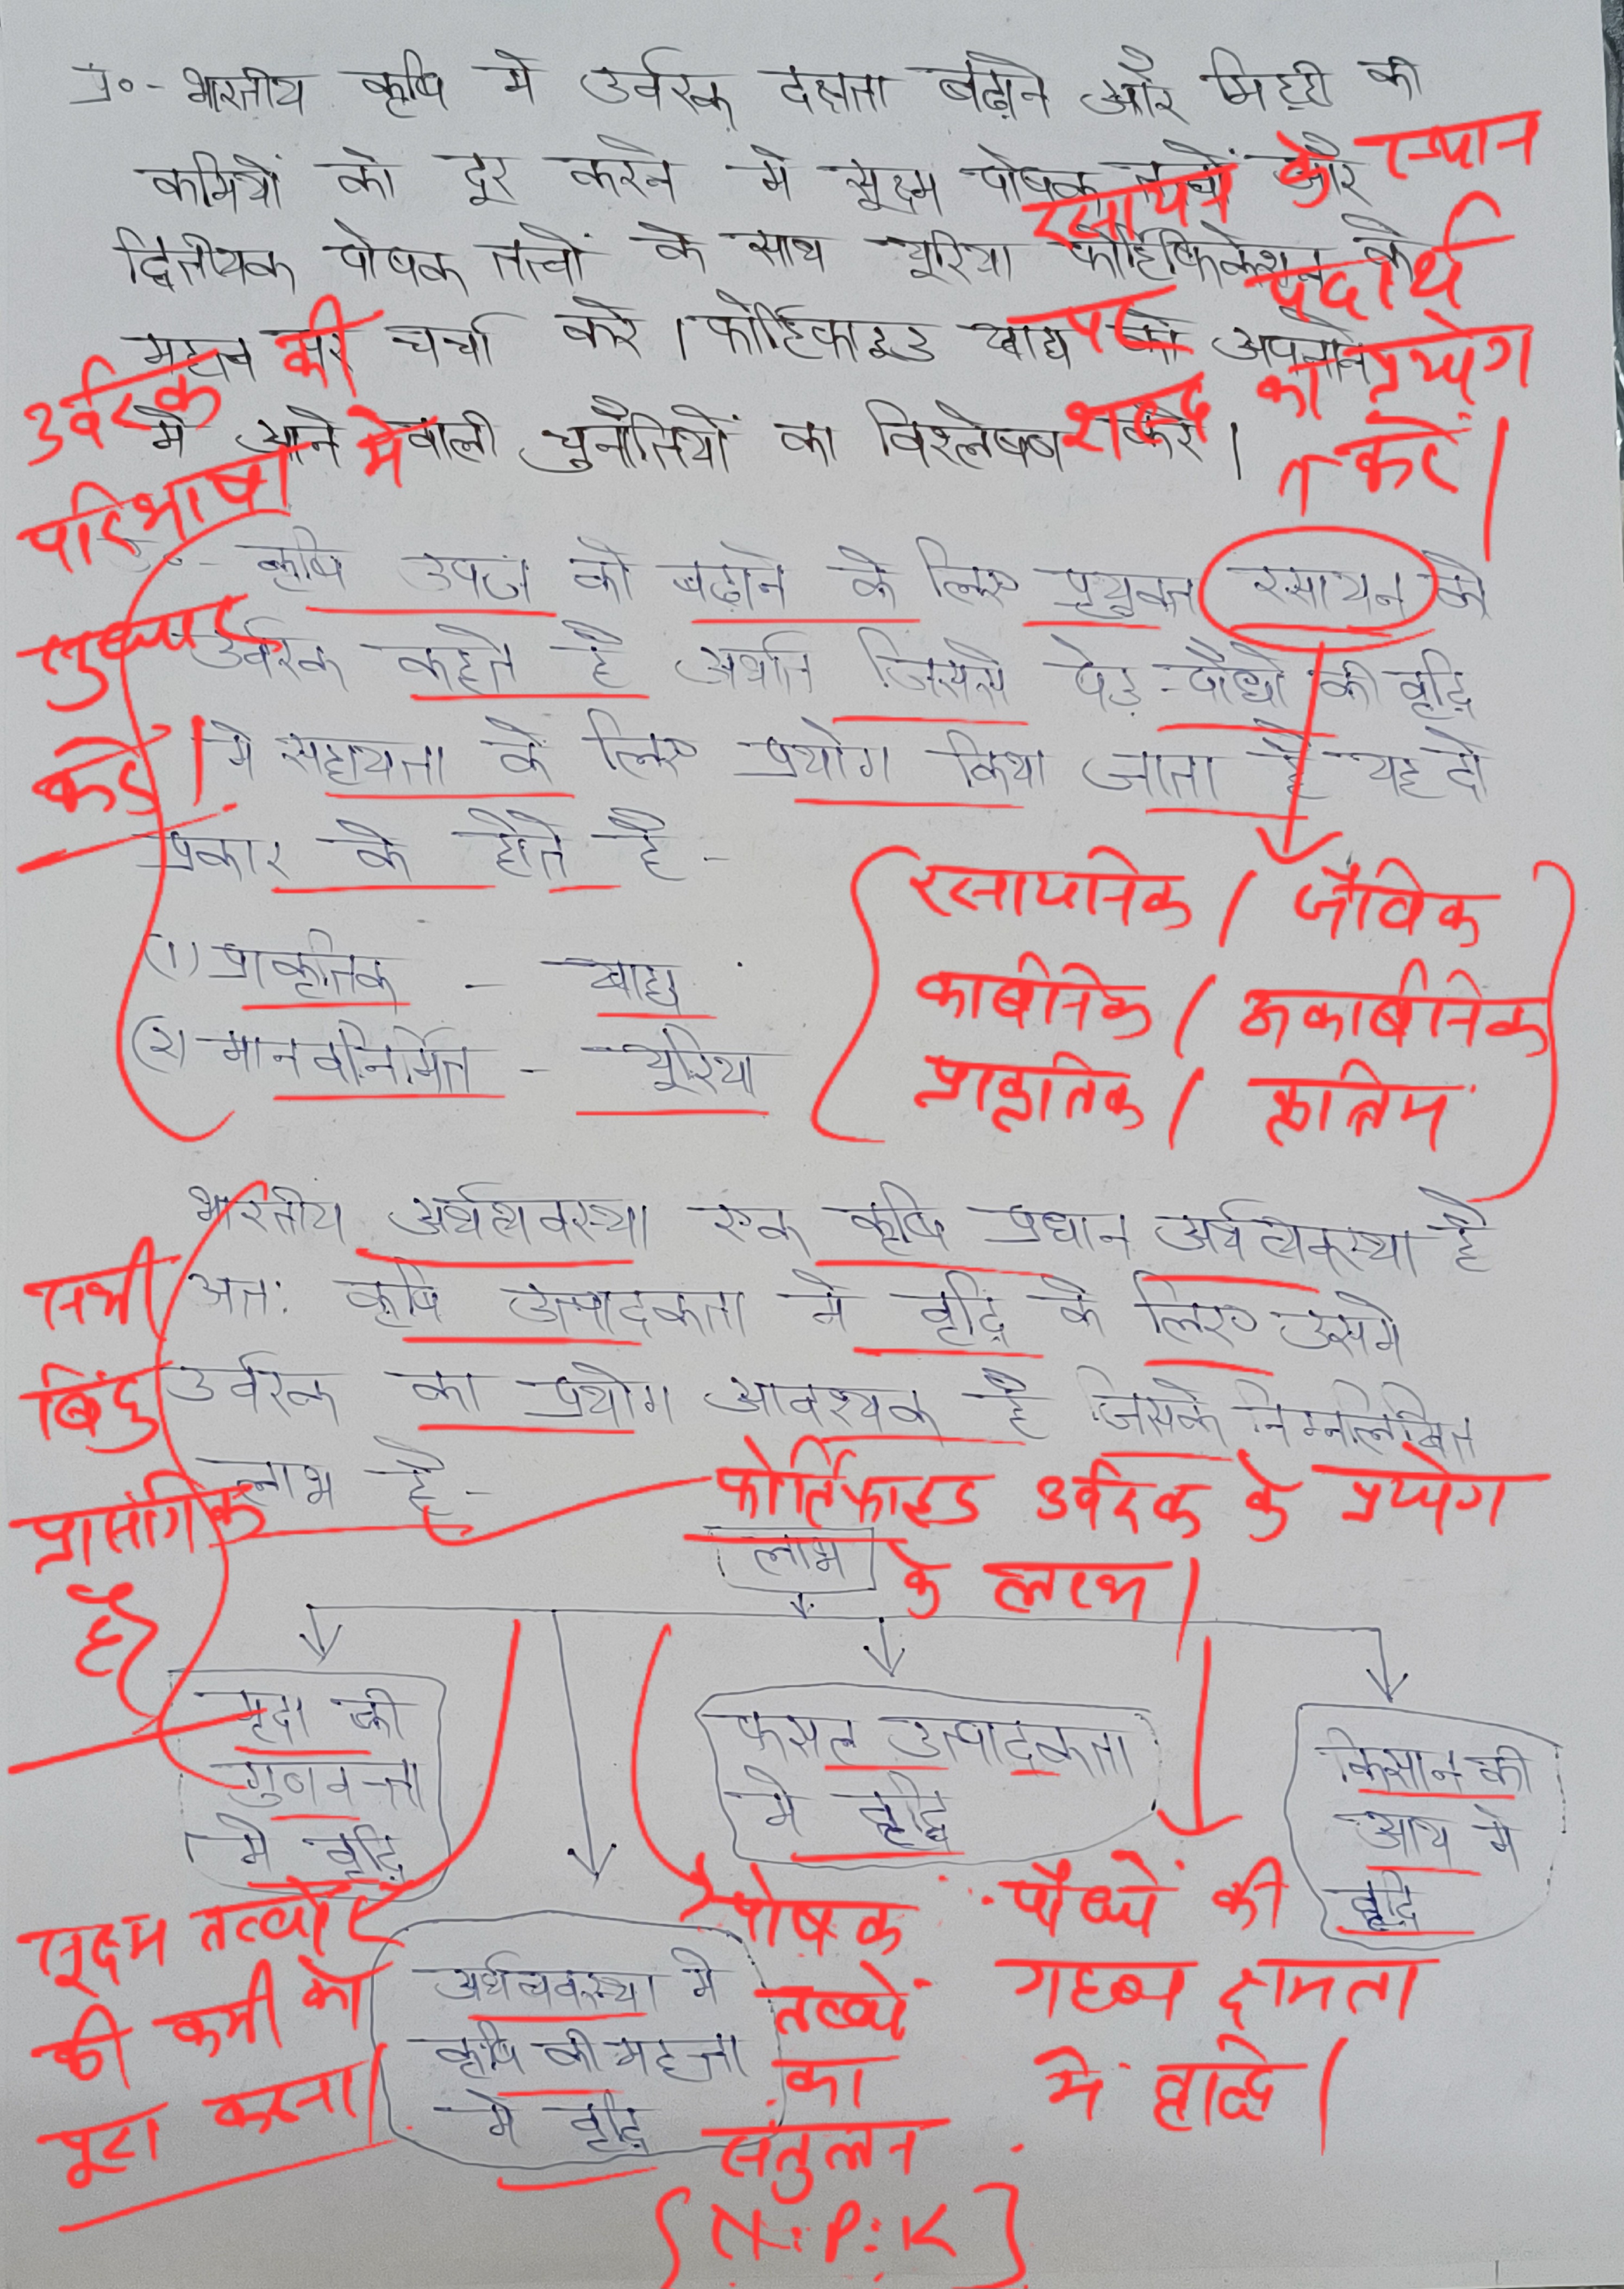 प्र०- भारतीय कृषि मे उर्वरक दक्षता बढ़ाने और मिट्टी की
कमियों को दूर करने मे सूक्ष्म पोषक तत्वों और
द्वितीयक पोषक तत्वों के साथ यूरिया फोर्टिफिकेशन के
महत्व पर चर्चा करे। फोर्टिफाइड खाद्य को अपनाने
मे आने वाली चुनौतियों का विश्लेषण करे।
रसायन के स्थान
पर पदार्थ
शब्द का प्रयोग
करें।
उर्वरक की
परिभाषा में
सुधार
करें।
उ०- कृषि उपज को बढ़ाने के लिए प्रयुक्त रसायन को
उर्वरक कहते है अर्थात जिससे पेड़-पौधो की वृद्धि
मे सहायता के लिए प्रयोग किया जाता है यह दो
प्रकार के होते है-
(1) प्राकृतिक - खाद्य
(2) मानवनिर्मित - यूरिया
रसायनिक / जैविक
कार्बनिक / अकार्बनिक
प्राकृतिक / कृत्रिम
भारतीय अर्थव्यवस्था एक कृषि प्रधान अर्थव्यवस्था है
अतः कृषि उत्पादकता मे वृद्धि के लिए उसमे
उर्वरक का प्रयोग आवश्यक है जिसके निम्नलिखित
लाभ है-
सभी
बिंदु
प्रासंगिक
हैं
फोर्टिफाइड उर्वरक के प्रयोग
के लाभ।
लाभ
मृदा की
गुणवत्ता
मे वृद्धि
फसल उत्पादकता
मे वृद्धि
किसान की
आय मे
वृद्धि
अर्थव्यवस्था मे
कृषि की महत्ता
मे वृद्धि
सूक्ष्म तत्वों
की कमी को
पूरा करना।
पोषक
तत्वों
का
संतुलन
[N:P:K]
पौधों की
ग्रहण क्षमता
में वृद्धि।